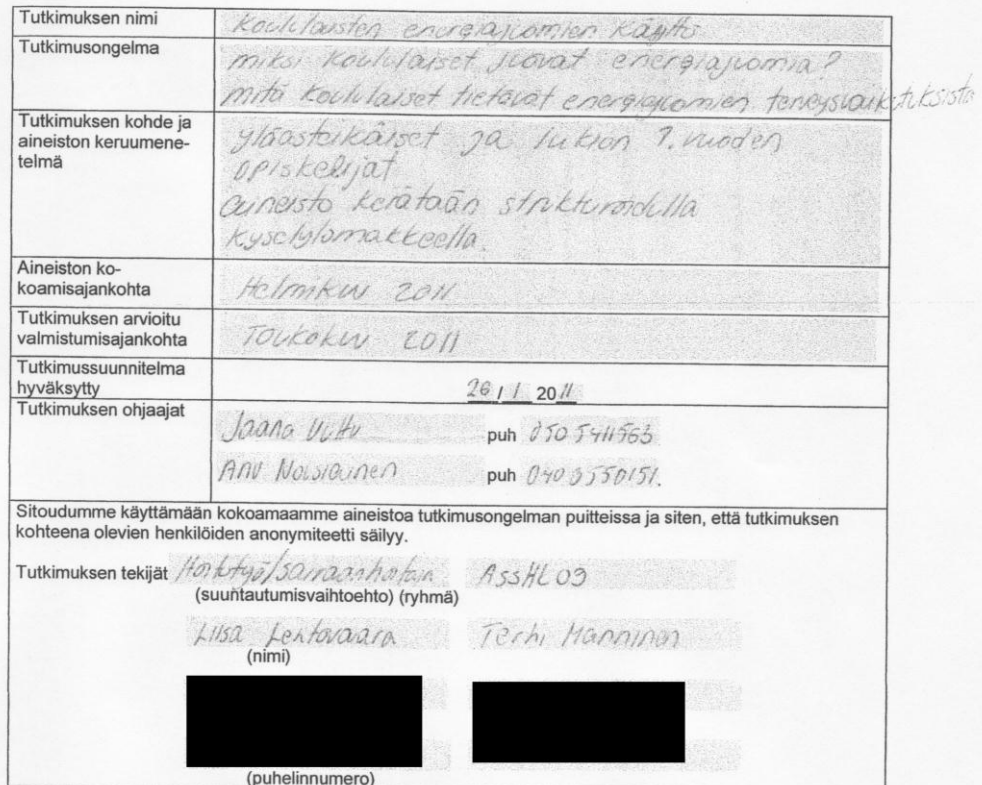 Tutkimuksen nimi
Koululaisten energiajuomien käyttö
Tutkimusongelma
miksi koululaiset juovat energiajuomia?
mitä koululaiset tietävät energiajuomien terveysvaikutuksista
Tutkimuksen kohde ja
aineiston keruumene-
telmä
yläasteikäiset ja lukion 1. vuoden
opiskelijat
aineisto kerätään strukturoidulla
kyselylomakkeella.
Aineiston ko-
koamisajankohta
Helmikuu 2011
Tutkimuksen arvioitu
valmistumisajankohta
Toukokuu 2011
Tutkimussuunnitelma
hyväksytty
26 / 1 2011
Tutkimuksen ohjaajat
Jaana puh 050 5411563
Anu puh 040 0550151.
Sitoudumme käyttämään kokoamaamme aineistoa tutkimusongelman puitteissa ja siten, että tutkimuksen
kohteena olevien henkilöiden anonymiteetti säilyy.
Tutkimuksen tekijät Hoitotyö/sairaanhoitaja AssHL03
(suuntautumisvaihtoehto) (ryhmä)
Liisa Lehtovaara Terhi Manninen
(nimi)
(puhelinnumero)